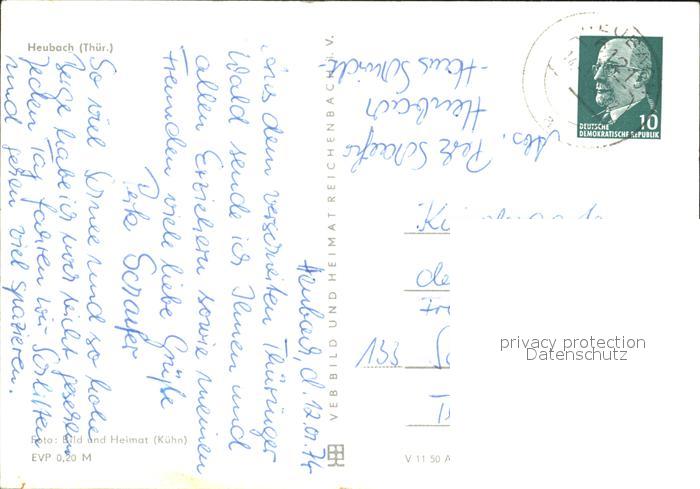 Heubach (Thür.)
Heubach, d. 12.01.74
Aus dem verschneiten Thüringer
Wald sende ich Ihnen und
allen Erziehern sowie meinen
Freunden viele liebe Grüße
Schaefer
So viel Schnee und so hohe
Berge habe ich noch nicht gesehen
Jeden Tag fahren wir Schlitten
und gehen viel spazieren.
Foto: Bild und Heimat (Kühn)
EVP 0,20 M
VEB BILD UND HEIMAT REICHENBACH I. V.
V 11 50 A
Abs. Schaefer
Heubach
-Haus Schmidt-
10
DEUTSCHE
DEMOKRATISCHE REPUBLIK
133
privacy protection
Datenschutz